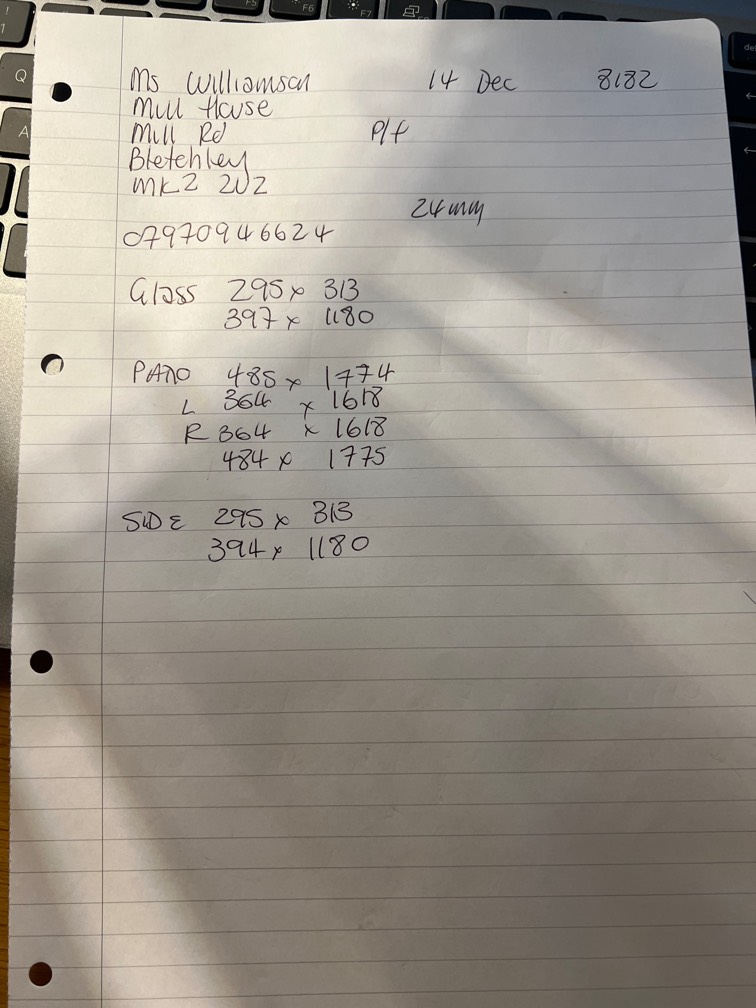 Ms Williamson 14 Dec 8182
Mill House
Mill Rd P/f
Bletchley
MK2 2UZ
24mm
07970946624
Glass 295 x 313
397 x 1180
PATIO 485 x 1774
L 364 x 1618
R 364 x 1618
484 x 1775
SIDE 295 x 313
394 x 1180